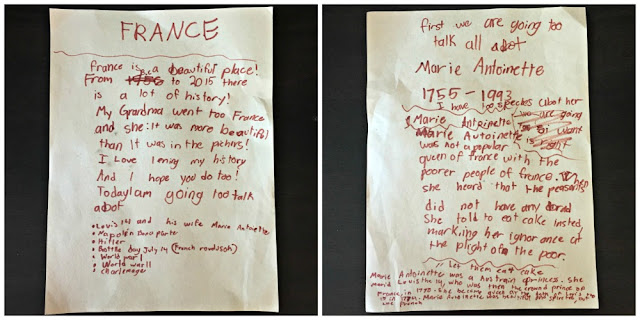 FRANCE
France is a beautiful place!
From to 2015 there
is a lot of history!
My Grandma went too France
and she: It was more beautiful
than It was in the pichurs!
I Love lening my history
And I hope you do too!
Today I am going too talk
abot
Louis 14 and his wife Marie Antoinette
Napoleon Bonaparte
Hitler
Bastille day July 14 (French
World war I
World war II
Charlemage
first we are going too
talk all abot
Marie Antoinette
1755-1993
I have abot her
Marie Antoinette we are going
Marie Antoinette want
was not a popular is right
queen of france with the
poorer people of france. When
she heard that the peasants
did not have any
She told to eat cake insted,
marking her ignorance at
the plight of the poor.
" Let them eat cake
Marie Antoinette was a Austrain princess. She
marid Louis the 14, who was then the crowd prince of
France, in 1770. She became queen at the
in Marie Antoinette was beautiful and but